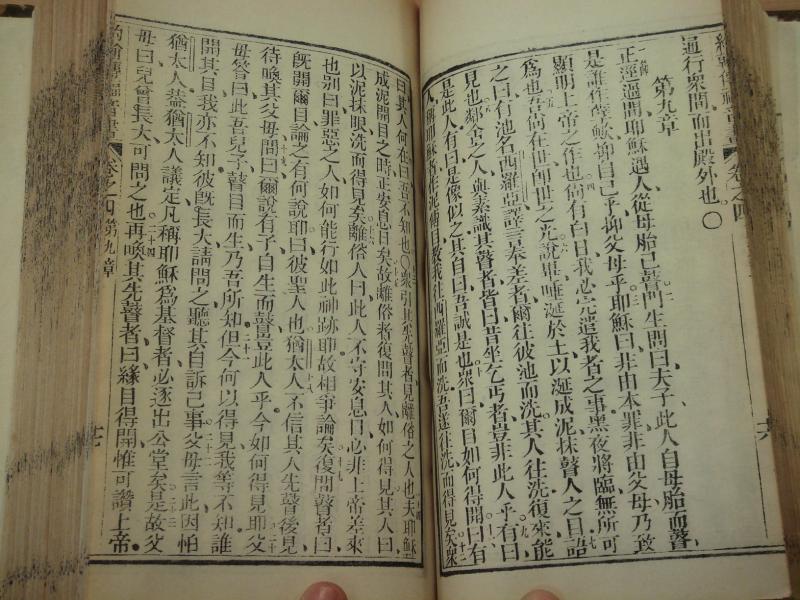 卷之四
通行衆間而出殿外也〇
第九章
正徑過間耶穌遇人從母胎已瞽門生問曰夫子此人自母胎而瞽
是誰作孽歟抑自己乎抑父母乎耶穌曰非由本罪非由父母乃致
顯明上帝之作也尚有白日我必完遣我者之事黑夜將臨無所可
為也吾尚在世卽世之光說畢唾涎於土以涎成泥抹瞽人之目語
之曰有池名西羅亞譯言奉差者爾往彼池而洗其人往洗復來能
見也鄰舍之人與素識其瞽者皆曰昔坐乞丐者豈非此人乎有曰
是此人有曰是像似之其自曰吾誠是也衆曰爾目如何得開曰有
人稱耶穌者作泥目教我往西羅亞而洗吾遂往洗而得見矣衆
曰其人何在曰吾不知也〇衆引其先瞽者見離俗之人也夫耶穌
成泥開目之時正安息日矣故離俗者復問其人如何得見其人曰
以泥抹眼洗而得見矣離俗人曰此人不守安息日必非上帝差來
也別曰罪惡之人如何能行如此神跡耶故相爭論矣復問瞽者曰
旣開爾目論之有何說耶曰彼聖人也猶太人不信其人先瞽後見
待喚其父母問曰爾說有子自生而瞽豈此人乎今如何得見耶父
母答曰此吾兒子瞽目而生乃吾所知但今何以得見我等不知誰
開其目我亦不知彼旣長大請問之聽其自訴己事父母言此因怕
猶太人蓋猶太人議定凡稱耶穌爲基督者必逐出公堂矣是故父
母曰兒曾長大可問之也再喚其先瞽者曰緣目得開惟可讚上帝
約翰傳福音書 卷之四 第九章